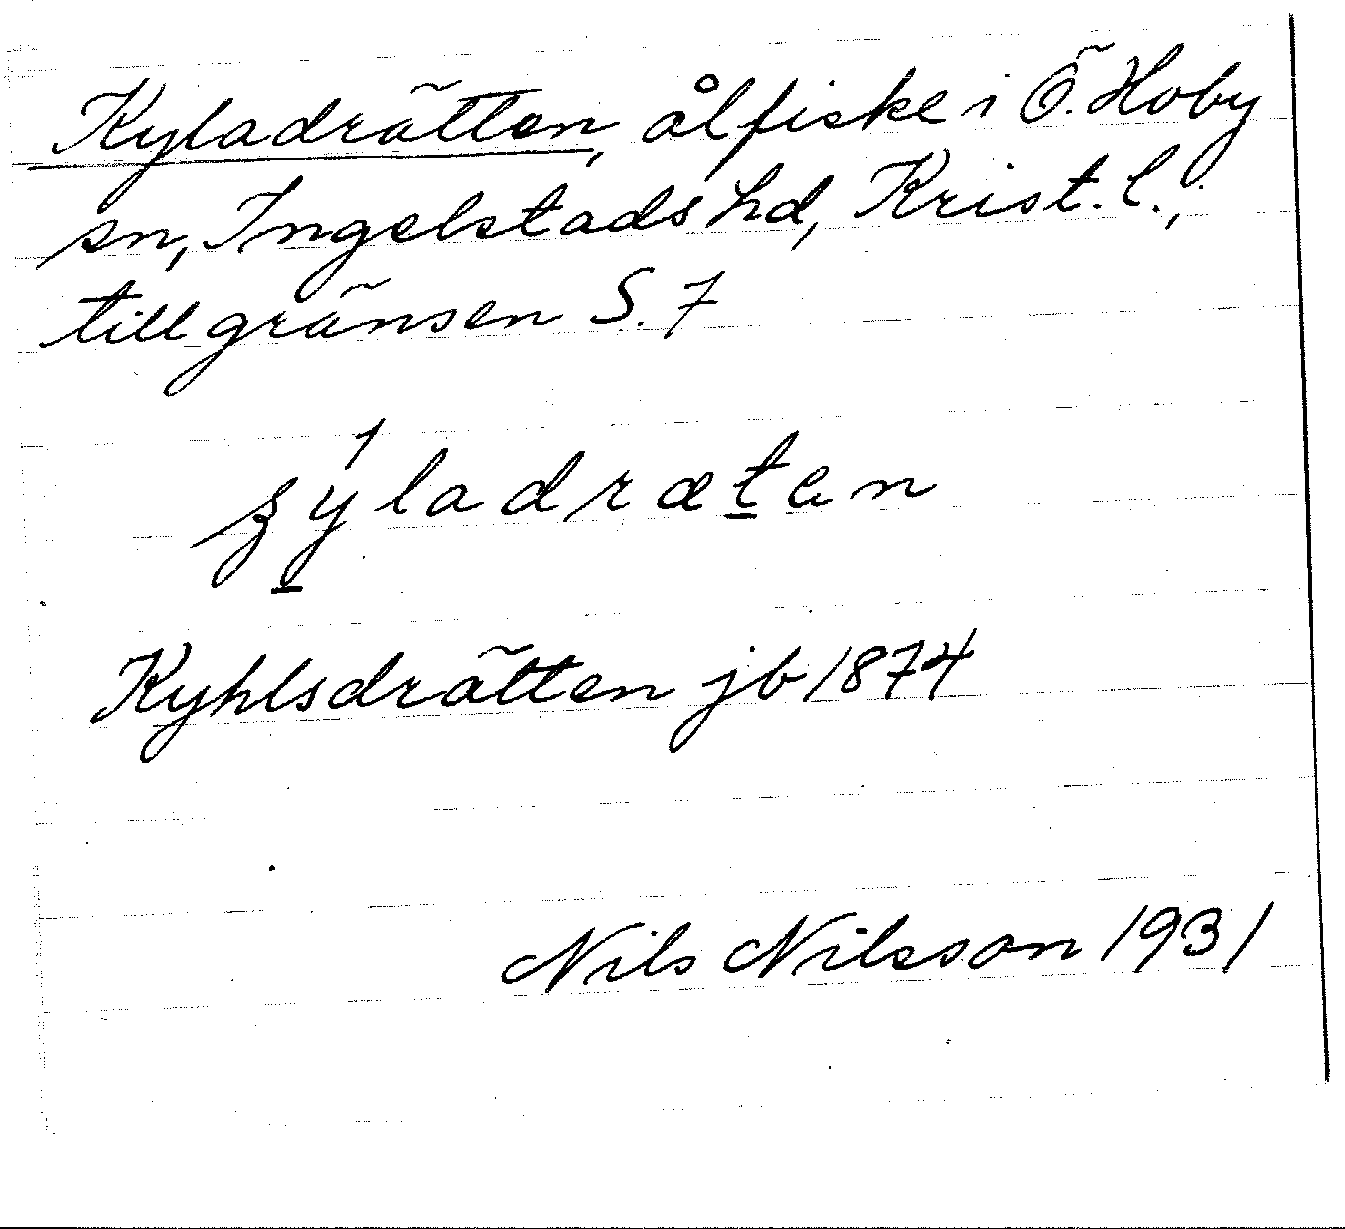 Kyladrätten, ålfiske i Ö. Hoby
sn, Ingelstads hd, Krist. l.;
till gränsen S. 7
Kyhlsdrätten jb 1874
Nils Nilsson 1931